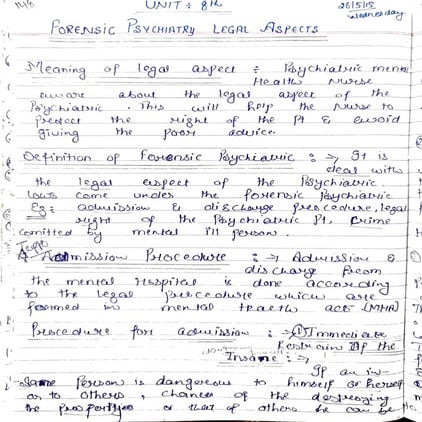 148
UNIT : 8th
26/5/15
Wednesday
FORENSIC PSYCHIATRY LEGAL ASPECTS
Meaning of legal aspect :- Psychiatric mental
Health Nurse
aware about the legal aspect of the
Psychiatric. This will help the Nurse to
protect the right of the Pt & avoid
giving the poor advice.
Definition of Forensic Psychiatric :-> It is
deal with
the legal aspect of the Psychiatric.
laws come under the forensic Psychiatric
Eg: admission & discharge procedure, legal
right of the Psychiatric Pt, crime
comitted by mental ill person.
Topic
Admission Procedure :-> Admission &
discharge from
the mental Hospital is done according
to the legal procedure which are
formed in mental health act (MHA)
Procedure for admission :-> ① Immediate
Restrain of the
Insane :->
If an in-
sane person is dangerous to himself or herself
or to others, chances of the destroying
the properties or that of others he can be